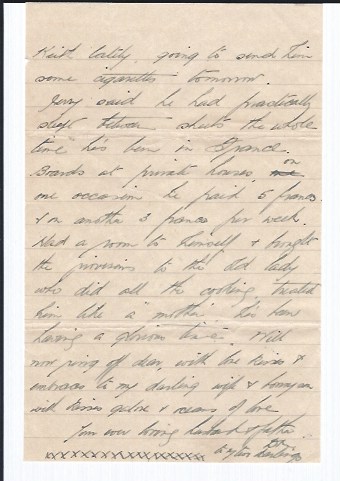 Keith lately, going to send him
some cigarettes tomorrow.
Jerry said he had practically
slept between "sheets the whole
time" he's been in France.
Boards at private houses, on
one occasion he paid 5 francs
& on another 3 francs per week.
Had a room to himself & brought
the provisions to the old lady
who did all the cooking, treated
him like a "mother". He's now
having a glorious time. Will
now ring off dear, with love kisses &
embraces to my darling wife &
with kisses galore & oceans of love
Your ever loving husband & father
xxxxxxxxxxxxxxxxxxxx